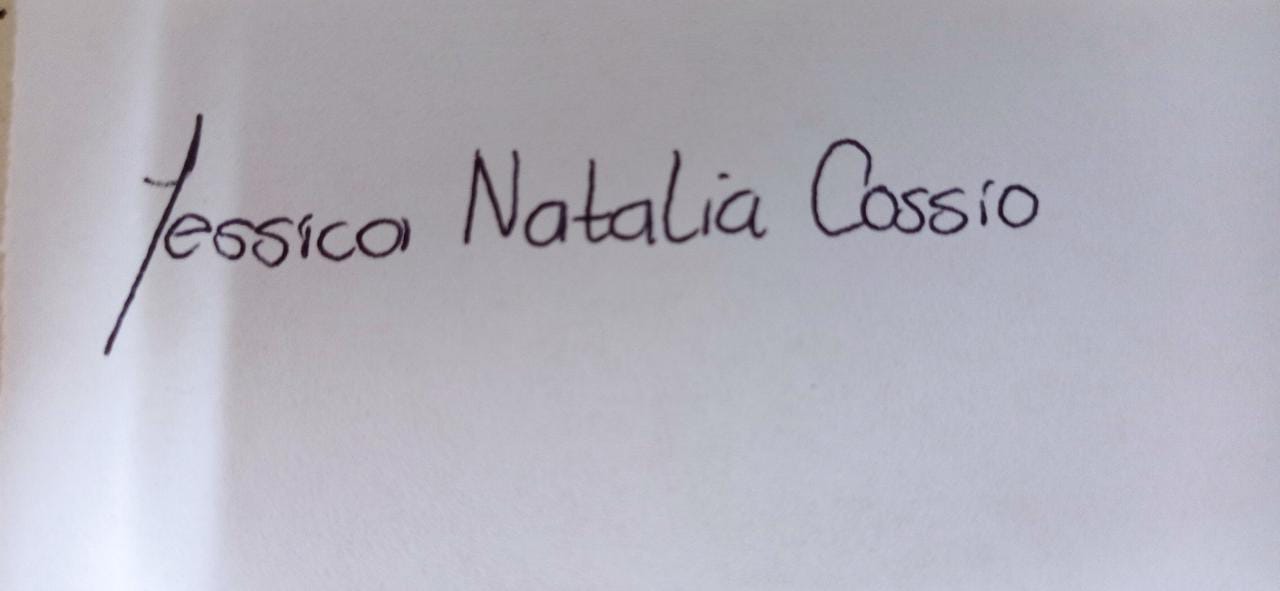 Yessica Natalia Cossio